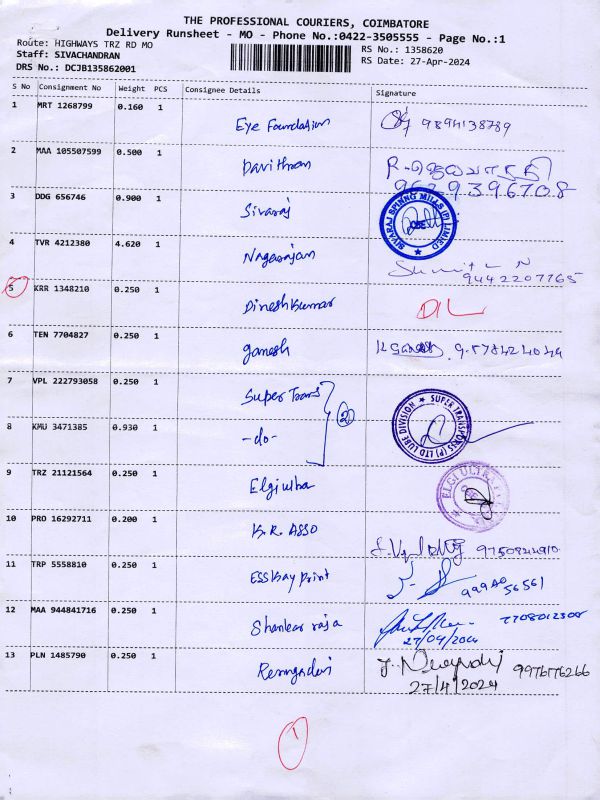 THE PROFESSIONAL COURIERS, COIMBATORE
Delivery Runsheet - MO - Phone No.:0422-3505555 - Page No.:1
Route: HIGHWAYS TRZ RD MO
Staff: SIVACHANDRAN
DRS No.: DCJB135862001
RS No.: 1358620
RS Date: 27-Apr-2024
S No Consignment No Weight PCS Consignee Details Signature
1 MRT 1268799 0.160 1 Eye Foundation 9894138789
2 MAA 105507599 0.500 1 Pavithran
3 DDG 656746 0.900 1 Sivaraj SIVARAJ SPINNG MILLS (P) LIMITED
4 TVR 4212380 4.620 1 Nagarajan 9442207765
5 KRR 1348210 0.250 1 Dineshkumar DIL
6 TEN 7704827 0.250 1 ganesh
7 VPL 222793058 0.250 1 Super Trans
8 KMU 3471385 0.930 1 -do- 2 SUPER TRANSPORTS (P) LTD LUBE DIVISION
9 TRZ 21121564 0.250 1 Elgi ultra ELGI ULTRA
10 PRO 16292711 0.200 1 K.R. ASSO
11 TRP 5558810 0.250 1 ESSKay print 56561
12 MAA 944841716 0.250 1 Shankar raja 7708012308
27/04/2024
13 PLN 1485790 0.250 1 9976176266
27/4/2024
1